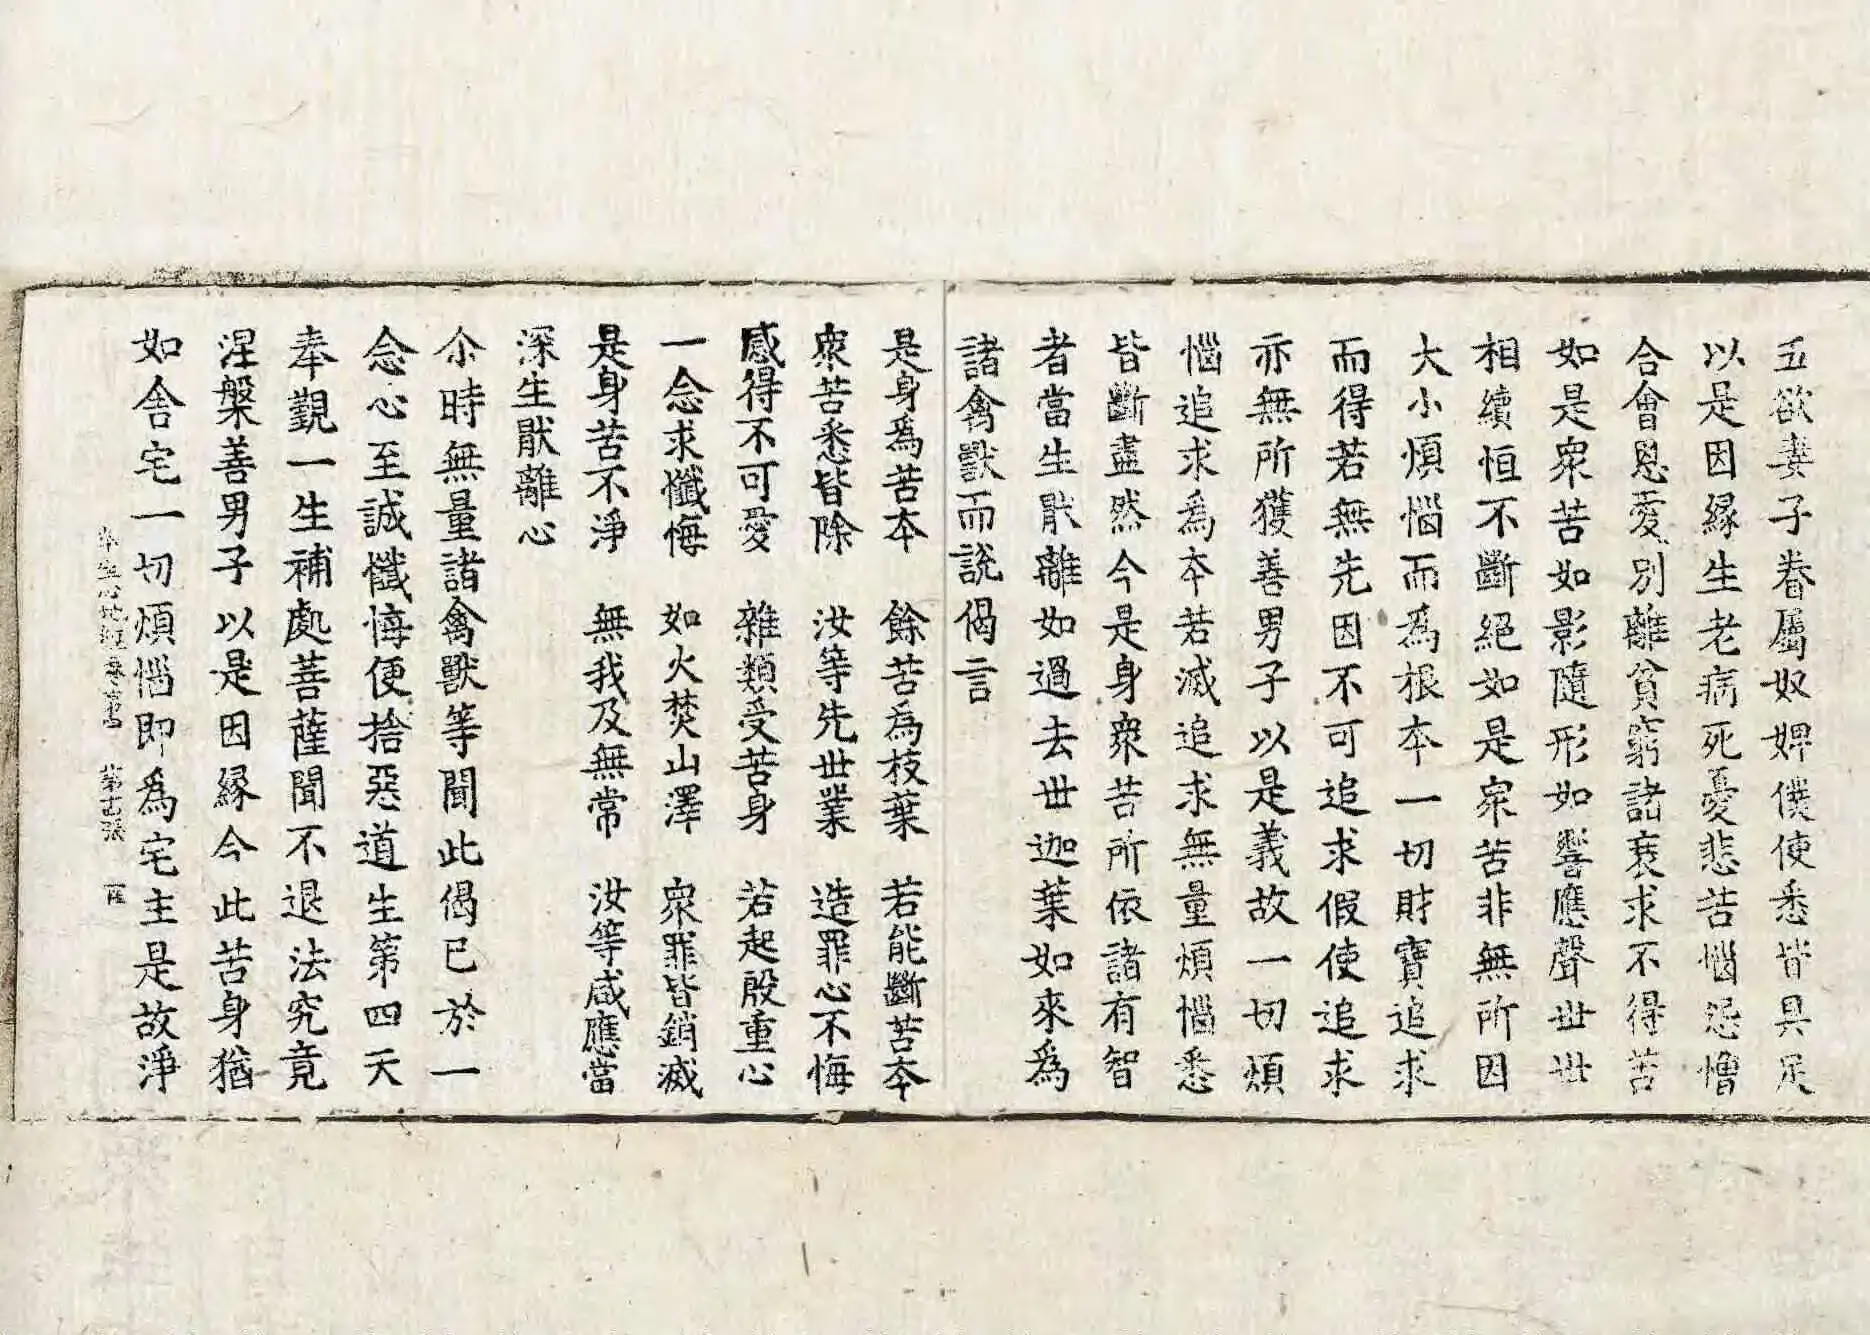 五欲妻子眷屬奴婢僕使悉皆具足
以是因緣生老病死憂悲苦惱怨憎
合會恩愛別離貧窮諸衰求不得苦
如是衆苦如影隨形如響應聲世世
相續恒不斷絕如是衆苦非無所因
大小煩惱而爲根本一切財寶追求
而得若無先因不可追求假使追求
亦無所獲善男子以是義故一切煩
惱追求爲本若滅追求無量煩惱悉
皆斷盡然今是身衆苦所依諸有智
者當生猒離如過去世迦葉如來爲
諸禽獸而說偈言
是身爲苦本 餘苦爲枝葉 若能斷苦本
衆苦悉皆除 汝等先世業 造罪心不悔
感得不可愛 雜類受苦身 若起殷重心
一念求懺悔 如火焚山澤 衆罪皆銷滅
是身苦不淨 無我及無常 汝等咸應當
深生猒離心
尒時無量諸禽獸等聞此偈已於一
念心至誠懺悔便捨惡道生第四天
奉覲一生補處菩薩聞不退法究竟
涅槃善男子以是因緣今此苦身猶
如舍宅一切煩惱即爲宅主是故淨
本生心地經 第 張